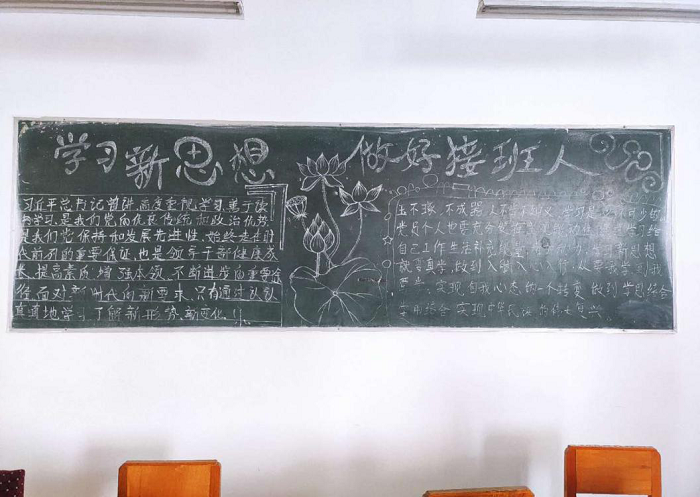 学习新思想
做好接班人
习近平总书记曾讲,高度重视学习,善于读
书学习,是我们党的优良传统和政治优势,
是我们党保持和发展先进性、始终走在时
代前列的重要保证,也是领导干部健康成
长、提高素质、增强本领、不断进步的重要途
径,面对新时代的新要求,只有通过认认
真真地学习了解新形势、新变化!!
玉不琢,不成器,人不学,不知义。学习是必不可少的
党员个人也要充分
自己工作生活 新思想
就要真学,做到入 从要我学到我
要学,实现自我心态的一个转变,做到学思结合
学用结合,实现中华民族的伟大复兴。